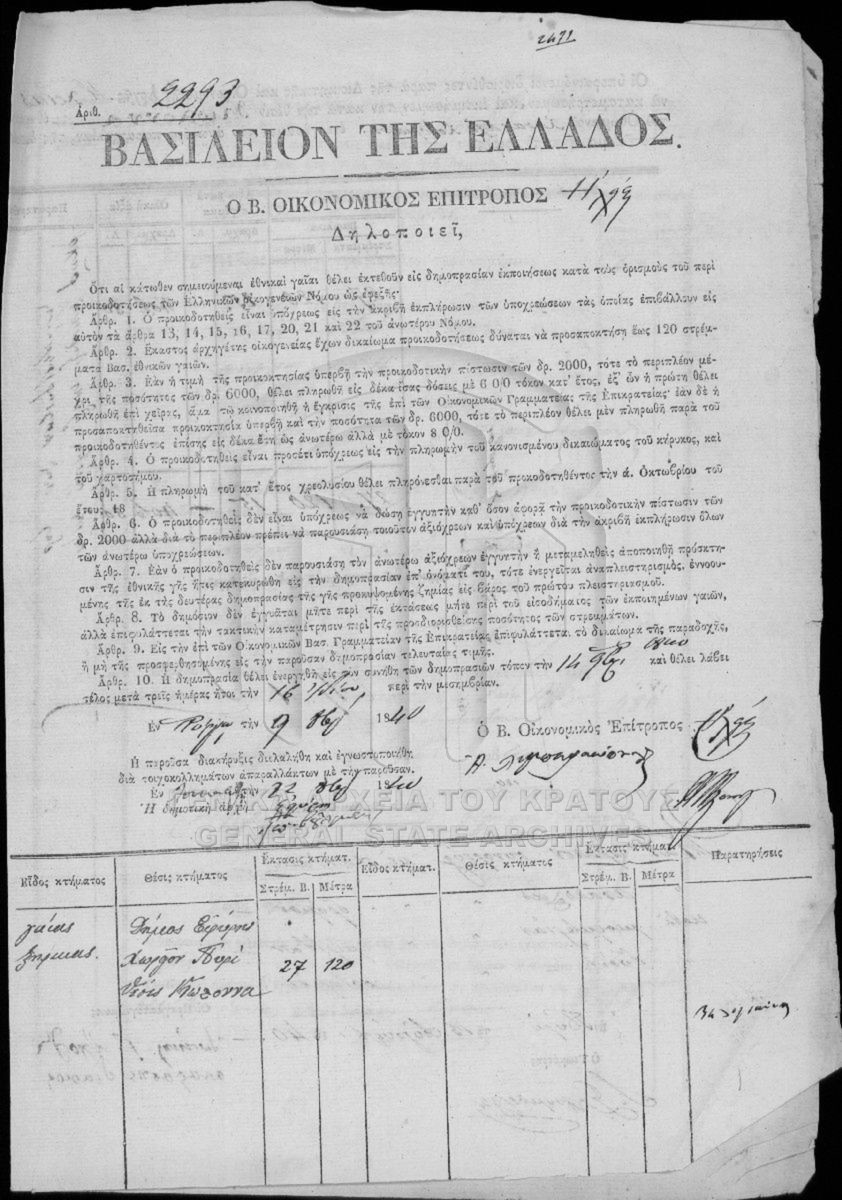 2471
Ἀριθ. 2293
ΒΑΣΙΛΕΙΟΝ ΤΗΣ ΕΛΛΑΔΟΣ.
Ο Β. ΟΙΚΟΝΟΜΙΚΟΣ ΕΠΙΤΡΟΠΟΣ
Δηλοποιεῖ,
Ὅτι αἱ κάτωθεν σημειούμεναι ἐθνικαὶ γαῖαι θέλει ἐκτεθοῦν εἰς δημοπρασίαν ἐκποιήσεως κατὰ τοὺς ὁρισμοὺς τοῦ περὶ
προικοδοτήσεως τῶν Ἑλληνικῶν οἰκογενειῶν Νόμου ὡς ἐφεξῆς·
Ἄρθρ. 1. Ὁ προικοδοτηθεὶς εἶναι ὑπόχρεως εἰς τὴν ἀκριβῆ ἐκπλήρωσιν τῶν ὑποχρεώσεων τὰς ὁποίας ἐπιβάλλουν εἰς
αὐτὸν τὰ ἄρθρα 13, 14, 15, 16, 17, 20, 21 καὶ 22 τοῦ ἀνωτέρου Νόμου.
Ἄρθρ. 2. Ἕκαστος ἀρχηγέτης οἰκογενείας ἔχων δικαίωμα προικοδοτήσεως δύναται νὰ προσαποκτήσῃ ἕως 120 στρέμ-
ματα Βασ. ἐθνικῶν γαιῶν.
Ἄρθρ. 3. Ἐὰν ἡ τιμὴ τῆς προικοκτησίας ὑπερβῇ τὴν προικοδοτικὴν πίστωσιν τῶν δρ. 2000, τότε τὸ περιπλέον μέ-
χρι τῆς ποσότητος τῶν δρ. 6000, θέλει πληρωθῆ εἰς δέκα ἴσας δόσεις μὲ 6 0/0 τόκον κατ' ἔτος, ἐξ ὧν ἡ πρώτη θέλει
πληρωθῆ ἐπὶ χεῖρας, ἅμα τῷ κοινοποιηθῇ ἡ ἔγκρισις τῆς ἐπὶ τῶν Οἰκονομικῶν Γραμματείας τῆς Ἐπικρατείας· ἐὰν δὲ ἡ
προσαποκτηθεῖσα προικοκτησία ὑπερβῇ καὶ τὴν ποσότητα τῶν δρ. 6000, τότε τὸ περιπλέον θέλει μὲν πληρωθῆ παρὰ τοῦ
προικοδοτηθέντος ἐπίσης εἰς δέκα ἔτη ὡς ἀνωτέρω ἀλλὰ μὲ τόκον 8 0/0.
Ἄρθρ. 4. Ὁ προικοδοτηθεὶς εἶναι προσέτι ὑπόχρεως εἰς τὴν πληρωμὴν τοῦ κανονισμένου δικαιώματος τοῦ κήρυκος, καὶ
τοῦ χαρτοσήμου.
Ἄρθρ. 5. Ἡ πληρωμὴ τοῦ κατ' ἔτος χρεολυσίου θέλει πληρόνεσθαι παρὰ τοῦ προικοδοτηθέντος τὴν ά. Ὀκτωβρίου τοῦ
ἔτους 18
Ἄρθρ. 6. Ὁ προικοδοτηθεὶς δὲν εἶναι ὑπόχρεως νὰ δώσῃ ἐγγυητὴν καθ' ὅσον ἀφορᾷ τὴν προικοδοτικὴν πίστωσιν τῶν
δρ. 2000 ἀλλὰ διὰ τὸ περιπλέον πρέπει νὰ παρουσιάσῃ τοιοῦτον ἀξιόχρεων καὶ ὑπόχρεων διὰ τὴν ἀκριβῆ ἐκπλήρωσιν ὅλων
τῶν ἀνωτέρω ὑποχρεώσεων.
Ἄρθρ. 7. Ἐὰν ὁ προικοδοτηθεὶς δὲν παρουσιάσῃ τὸν ἀνωτέρω ἀξιόχρεων ἐγγυητὴν ἢ μεταμεληθεὶς ἀποποιηθῇ πρόσκτη-
σιν τῆς ἐθνικῆς γῆς ἥτις κατεκυρώθη εἰς τὴν δημοπρασίαν ἐπ' ὀνόματί του, τότε ἐνεργεῖται ἀναπλειστηρισμὸς, ἐννοου-
μένης τῆς ἐκ τῆς δευτέρας δημοπρασίας τῆς γῆς προκυψομένης ζημίας εἰς βάρος τοῦ πρώτου πλειστηριασμοῦ.
Ἄρθρ. 8. Τὸ δημόσιον δὲν ἐγγυᾶται μήτε περὶ τῆς ἐκτάσεως μήτε περὶ τοῦ εἰσοδήματος τῶν ἐκποιημένων γαιῶν,
ἀλλὰ ἐπιφυλάττεται τὴν τακτικὴν καταμέτρησιν περὶ τῆς προσδιορισθείσης ποσότητος τῶν στρεμμάτων.
Ἄρθρ. 9. Εἰς τὴν ἐπὶ τῶν Οἰκονομικῶν Βασ. Γραμματείαν τῆς Ἐπικρατείας ἐπιφυλάττεται τὸ δικαίωμα τῆς παραδοχῆς,
ἢ μὴ τῆς προσφερθησομένης εἰς τὴν παροῦσαν δημοπρασίαν τελευταίας τιμῆς.
Ἄρθρ. 10. Ἡ δημοπρασία θέλει ἐνεργηθῆ εἰς τὸν συνήθη τῶν δημοπρασιῶν τόπον τὴν 14 καὶ θέλει λάβει
τέλος μετὰ τρεῖς ἡμέρας ἤτοι τὴν 16 περὶ τὴν μεσημβρίαν.
Ἐν Πύργῳ τὴν 9 1840
Ὁ Β. Οἰκονομικὸς Ἐπίτροπος
Ἡ παροῦσα διακήρυξις διελαλήθη καὶ ἐγνωστοποιήθη
διὰ τοιχοκολλημάτων ἀπαραλλάκτων μὲ τὴν παροῦσαν.
Ἐν τὴν 12 1840
Ἡ δημοτικὴ ἀρχὴ
ΓΕΝΙΚΑ ΑΡΧΕΙΑ ΤΟΥ ΚΡΑΤΟΥΣ
GENERAL STATE ARCHIVES
Εἶδος κτήματος Θέσις κτήματος Ἔκτασις κτήματ. Εἶδος κτήματ. Θέσις κτήματος Ἔκτασις κτήμα Παρατηρήσεις
Στρέμ. Β. Μέτρα Στρέμ. Β. Μέτρα
γαίας Δήμος
ξηρικάς. Χωρίον 27 120
θέσις